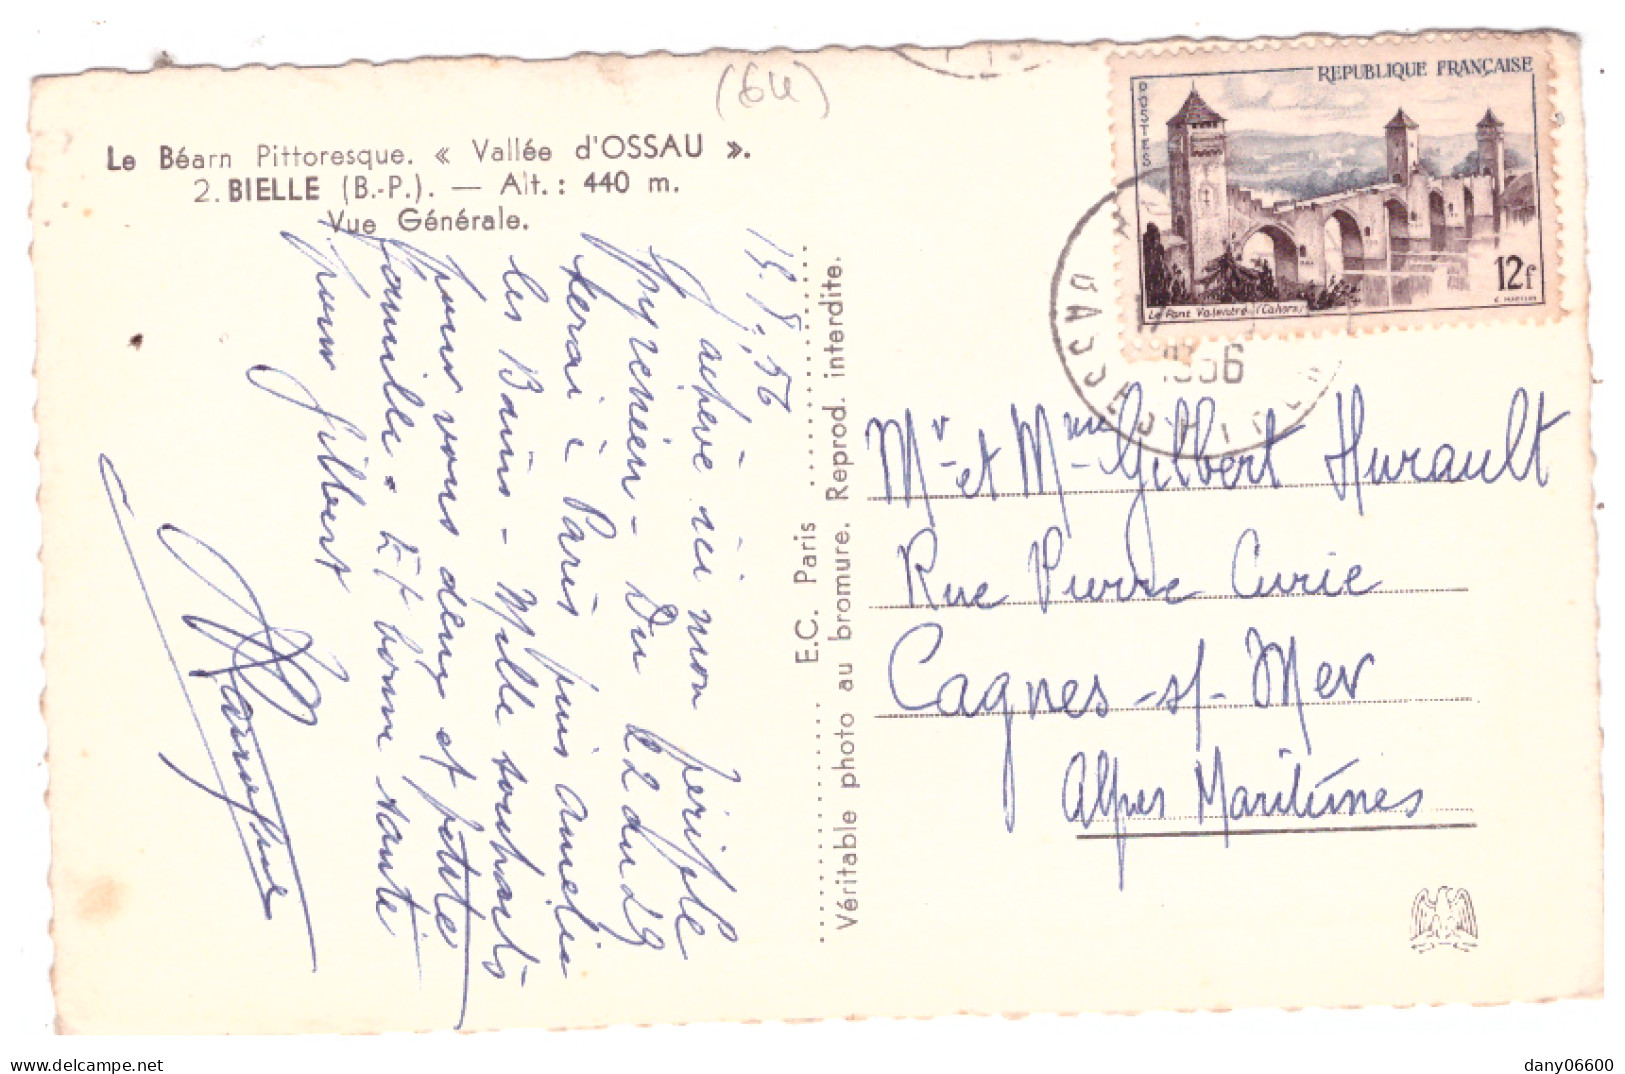 (64)
Le Béarn Pittoresque. « Vallée d'OSSAU ».
2. BIELLE (B.-P.). — Alt. : 440 m.
Vue Générale.
15.8.56
J'achève ici mon périple
pyrénéen - Du 22 au 29
serai à Paris puis Amélie
les Bains - Mille souhaits
pour vous deux et petite
famille. Et bonne santé
pour Gilbert
E.C. Paris
Véritable photo au bromure. Reprod. interdite.
REPUBLIQUE FRANÇAISE
POSTES
Le Pont Valentré (Cahors)
12f
1956
Mr et Mme Gilbert Hurault
Rue Pierre Curie
Cagnes-s/-Mer
Alpes Maritimes
dany06600